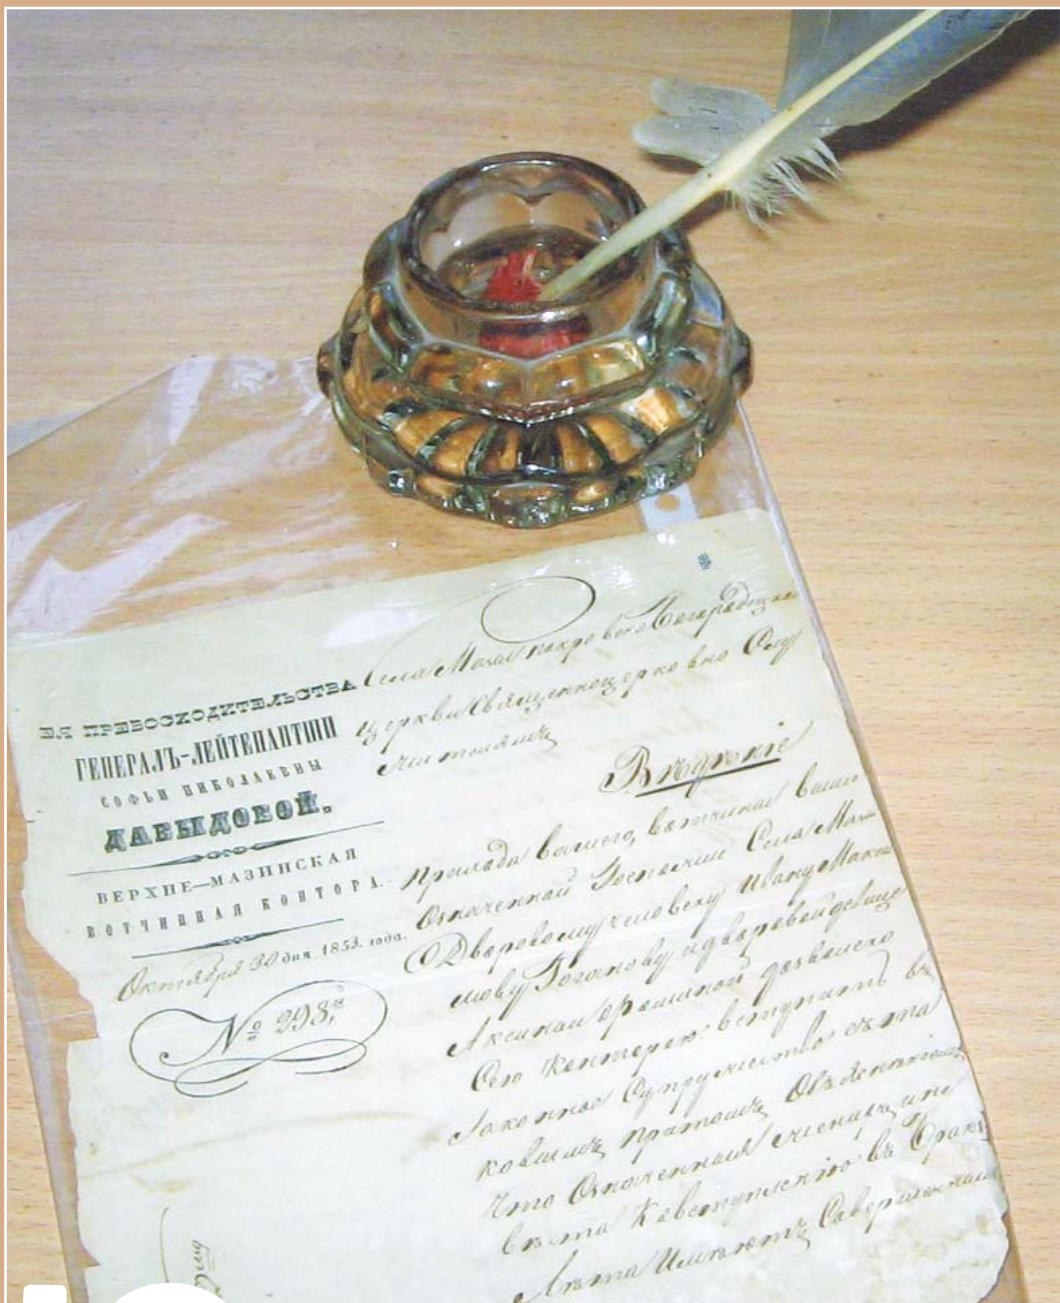 ЕЯ ПРЕВОСХОДИТЕЛЬСТВА
ГЕНЕРАЛЪ-ЛЕЙТЕНАНТШИ
СОФЬИ НИКОЛАЕВНЫ
ДАВЫДОВОЙ.
ВЕРХНЕ—МАЗИНСКАЯ
ВОТЧИННАЯ КОНТОРА.
Октября 30 дня 1853. года.
№ 298.
Села Мазы покровско Богородицкой
Церкви Священноцерковно Слу
жителямъ
Вѣдѣніе
Прихода вашего, вотчины выше
Означенной Госпожи Села Мазы
Дворовому человеку Ивану Макси
мову и дворовой девице
дозволено
Сею Конторою вступить въ
Законное Супружество съ та
ковымъ притомъ Объясненіемъ
Что Означенныя женихъ и не
веста Ко вступленію въ Бракъ
Лѣта Имѣютъ Совершенныя